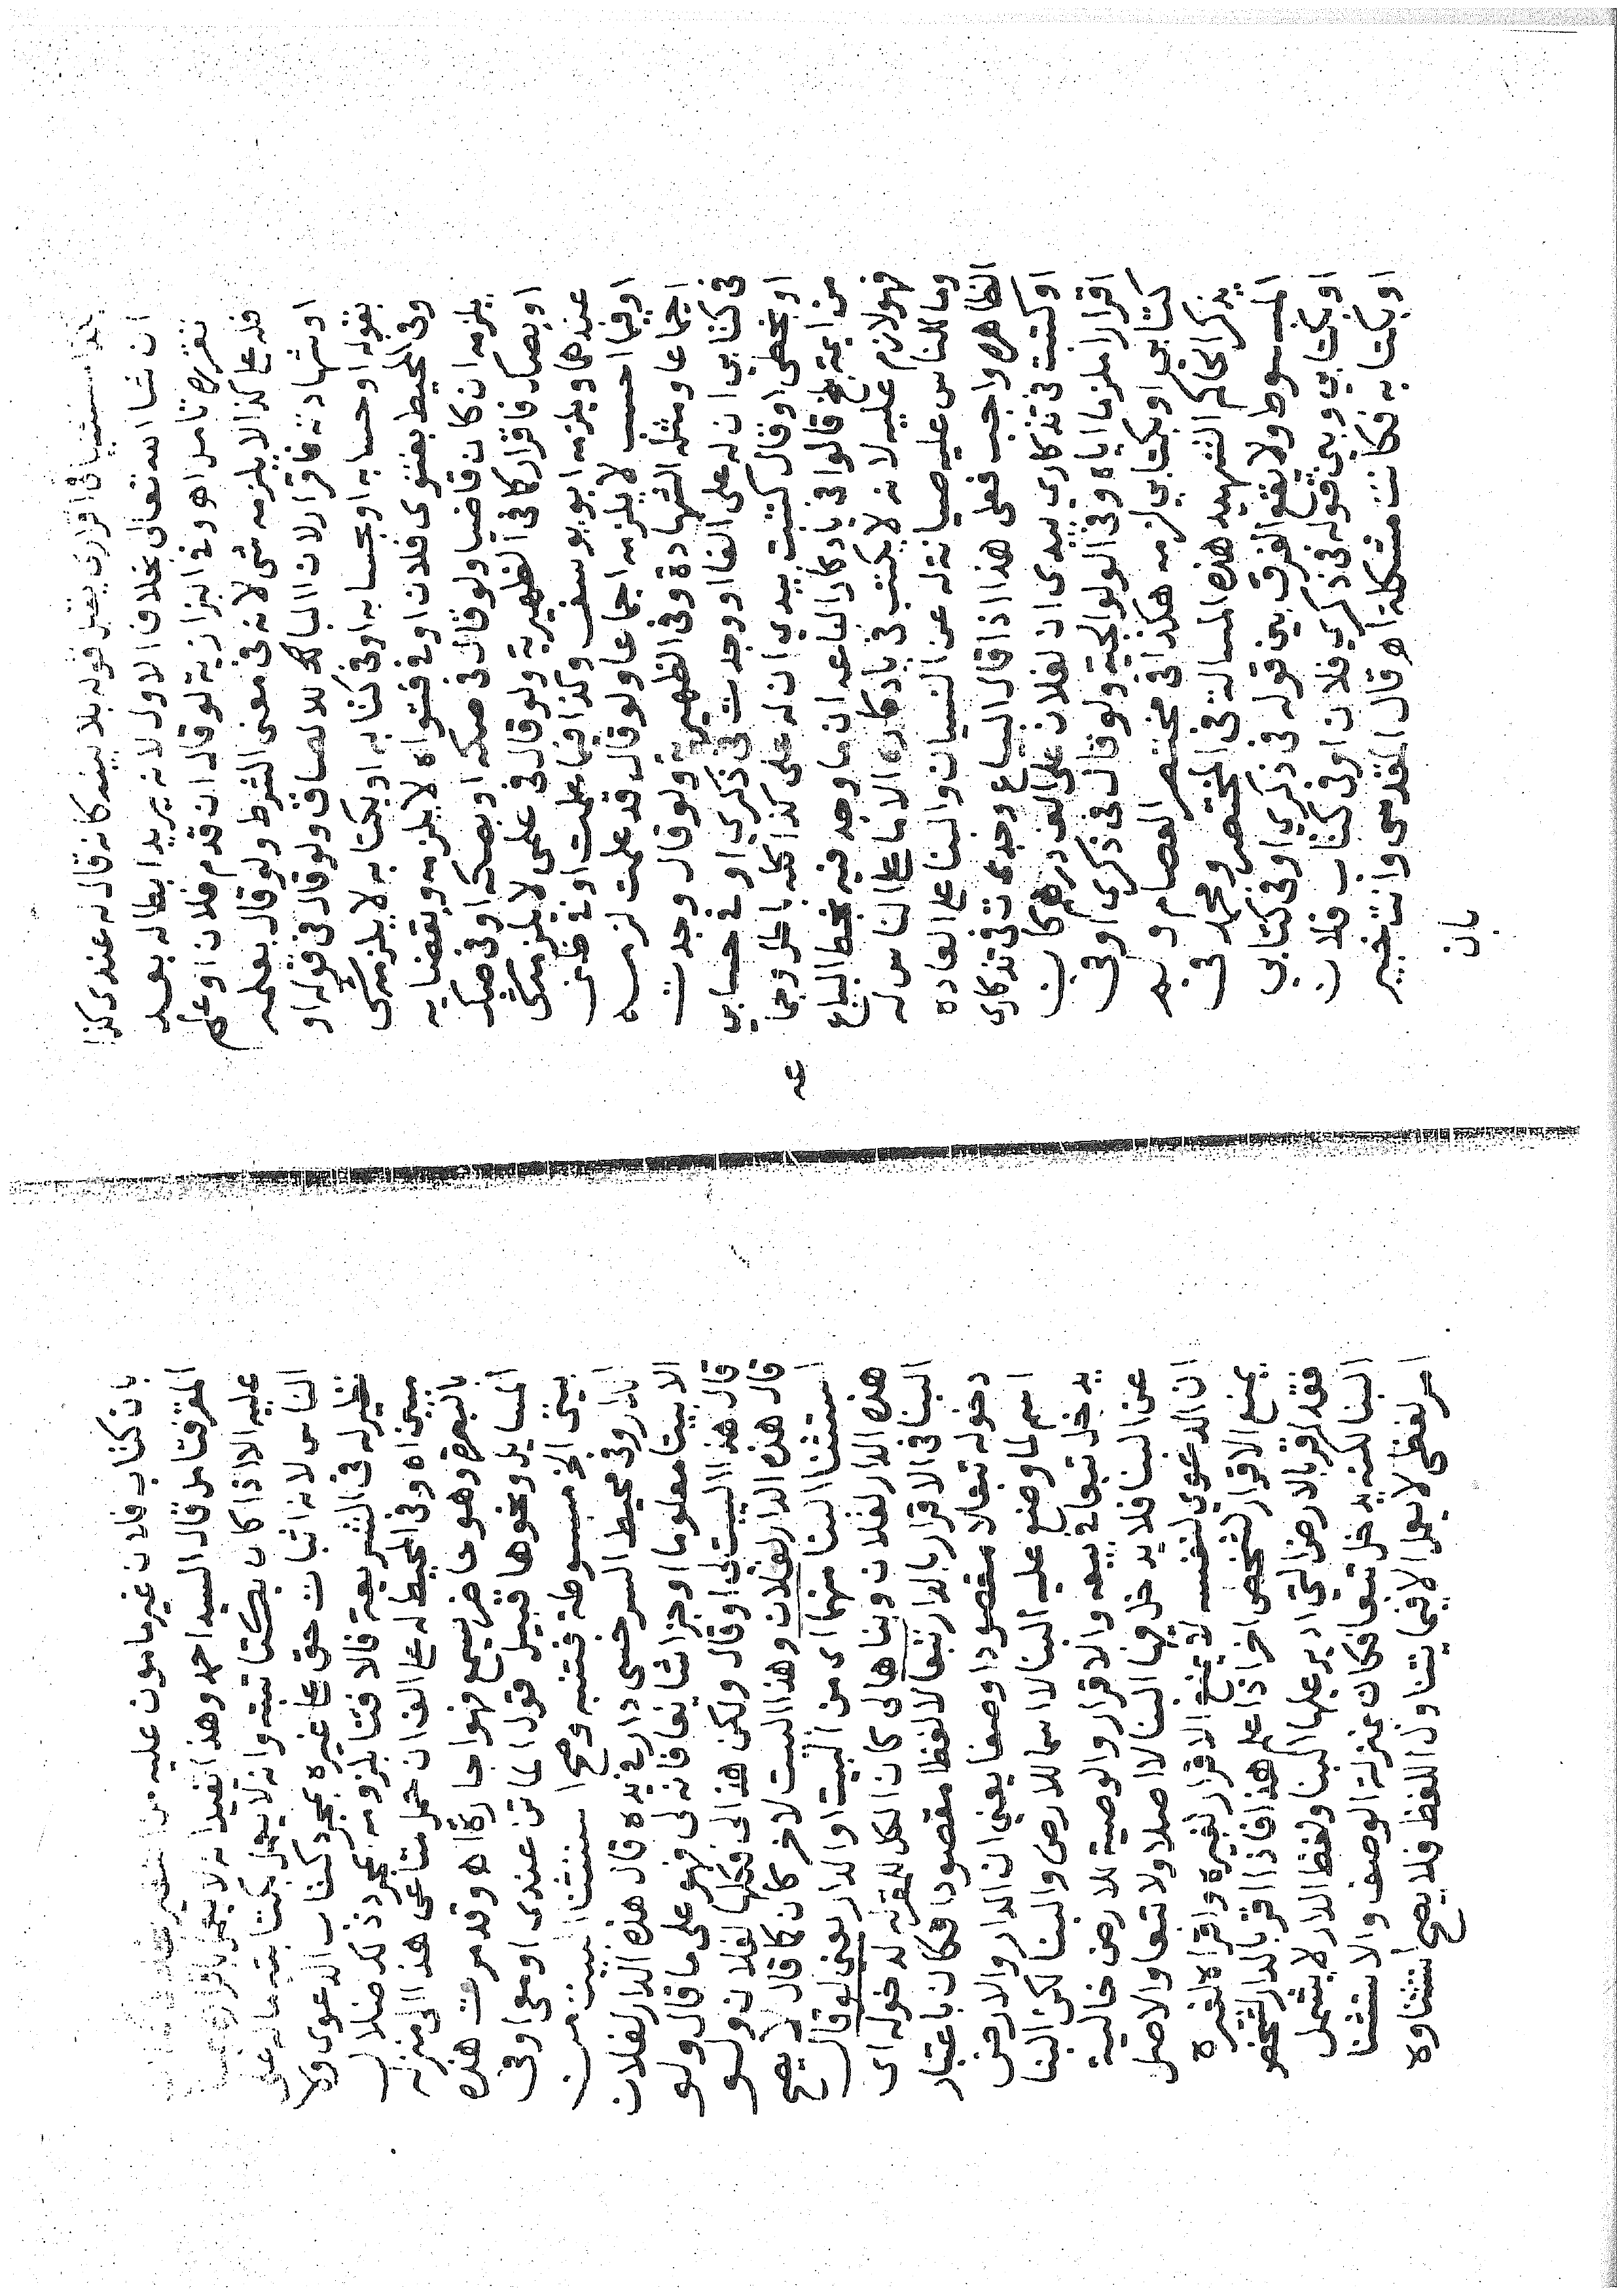 ان شا الله تعالى بخلاف الاول لانه يريد ابطاله بعد
تقرره تامل اهـ وفي البزازية لو قال ان قدم فلان او علم
فله علي كذا لا يلزمه شي لانه في معنى الشرط ولو قال بعلمه
او شهادته فاقرار لان البا للالصاق ولو قال في قوله او
بقوله او حسابه او بحسابه او في كتابه او بكتابه لا يلزم شي
وفي المحيط بفتوى فلان او في فتواه لا يلزمه وبقضايه
يلزمه ان كان قاضيا ولو قال في صكه او بصكه او في صك
او بصك فاقرار كما في الظهيرية ولو قال في علمي لا يلزم شي
عندهما ويلزمه ابو يوسف وكذا فيما علمت او في ظن
او فيما احسب لا يلزمه اجماعا ولو قال قد علمت لزمه
اجماعا ومثله الشهادة وفي الظهيرية ولو قال وجدت
في كتابي ان له علي الفا او وجدت في ذكري او في حسابي
او بخطي او قال كتبت بيدي ان له علي كذا كله باطل وجما
عه
من ايمة بلخ قالوا في يادكار الباعه ان ما وجد فيه بخط البياع
فهو لازم عليه لانه لا يكتب في يادكاره الا ما على الناس له
وما للناس عليه صيانة له عن النسيان والبنا على العاده
الظاهره واجب فعلى هذا اذا قال البياع وجدت في تذكاري
او كتبت في تذكاري بيدي ان لفلان علي الف درهم كان
اقرارا ملزما اياه وفي الولوالجية ولو قال في ذكري او في
كتابي او بكتابي لزمه هكذا في مختصر العصام و
يذكر الحاكم الشهيد هذه المسالة في المختصر ومحمد في
المبسوط ولا يقع الفرق بين قوله في ذكري او في كتابي
او بكتابي وبين قوله في ذكري فلان او في كتاب فلان
او بكتابه فكانت مشكلة اهـ قال المقدسي وانت خبير
بان
بان كتاب فلان غير مامون عليه من
المقر فتامل قال السيد احمد وهذا يفيد انه لا يعمل
عليه الا اذا كان بكتابته وانه لا يعمل بكتابته ماله على
الناس لانه اثبات حق على غيره بمجرد كتاب الدعوى ولا
نظير له في الشريعة فالافتا بلزومه بمجرد ذلك ضلال
مبين اهـ وفي المحيط له علي الف ان حمل متاعي هذا الى منزله
بالبصرة وهو حاضر يسمع فهو اجارة اهـ وقد مرت هذه
المسايل ونحوها قبيل قول الماتن عندي او معي او في
بيتي الخ مبسوطة فتنبه وصح استثنا البيت من
الدار وفي محيط السرخسي دار في يده قال هذه الدار لفلان
الا بيتا معلوما او جزا شايعا فانه لي فهو على ما قال ولو
قال هذا البيت لي او قال ولكن هذا لي فكلها لفلان ولو
قال هذه الدار لفلان وهذا البيت لاخر كان كما قال لا يصح
استثنا البنا منهما اي من البيت والدار يعني لو قال
هذه الدار لفلان وبناها لي كان الكل للمقر له لدخوله اي
البنا في الاقرار بالدار تبعا لا لفظا مقصودا فكان باعتبار
دخوله تبعا لا مقصودا وصفا يعني ان الدار والارض
اسم لما وضع عليه البنا لا اسما للارض والبنا لكن البنا
يدخل تبعا في بيعه والاقرار والوصية للارض خالية
عن البنا فلا يدخل فيها البنا لا اصلا ولا تبعا والاصل
ان الدعوى لنفسه لا يمنع الاقرار لغيره واقراره لغيره
يمنع الاقرار لشخص اخر اذا علم هذا فاذا اقر بالدار لشخص
فقد اقر بالارض التي ادير عليها البنا ولفظ الدار لا يشمل
البنا لكنه يدخل تبعا فكان بمنزلة الوصف والاستثنا
امر لفظي لا يعمل الا فيما يتناول اللفظ فلا يصح استثناوه